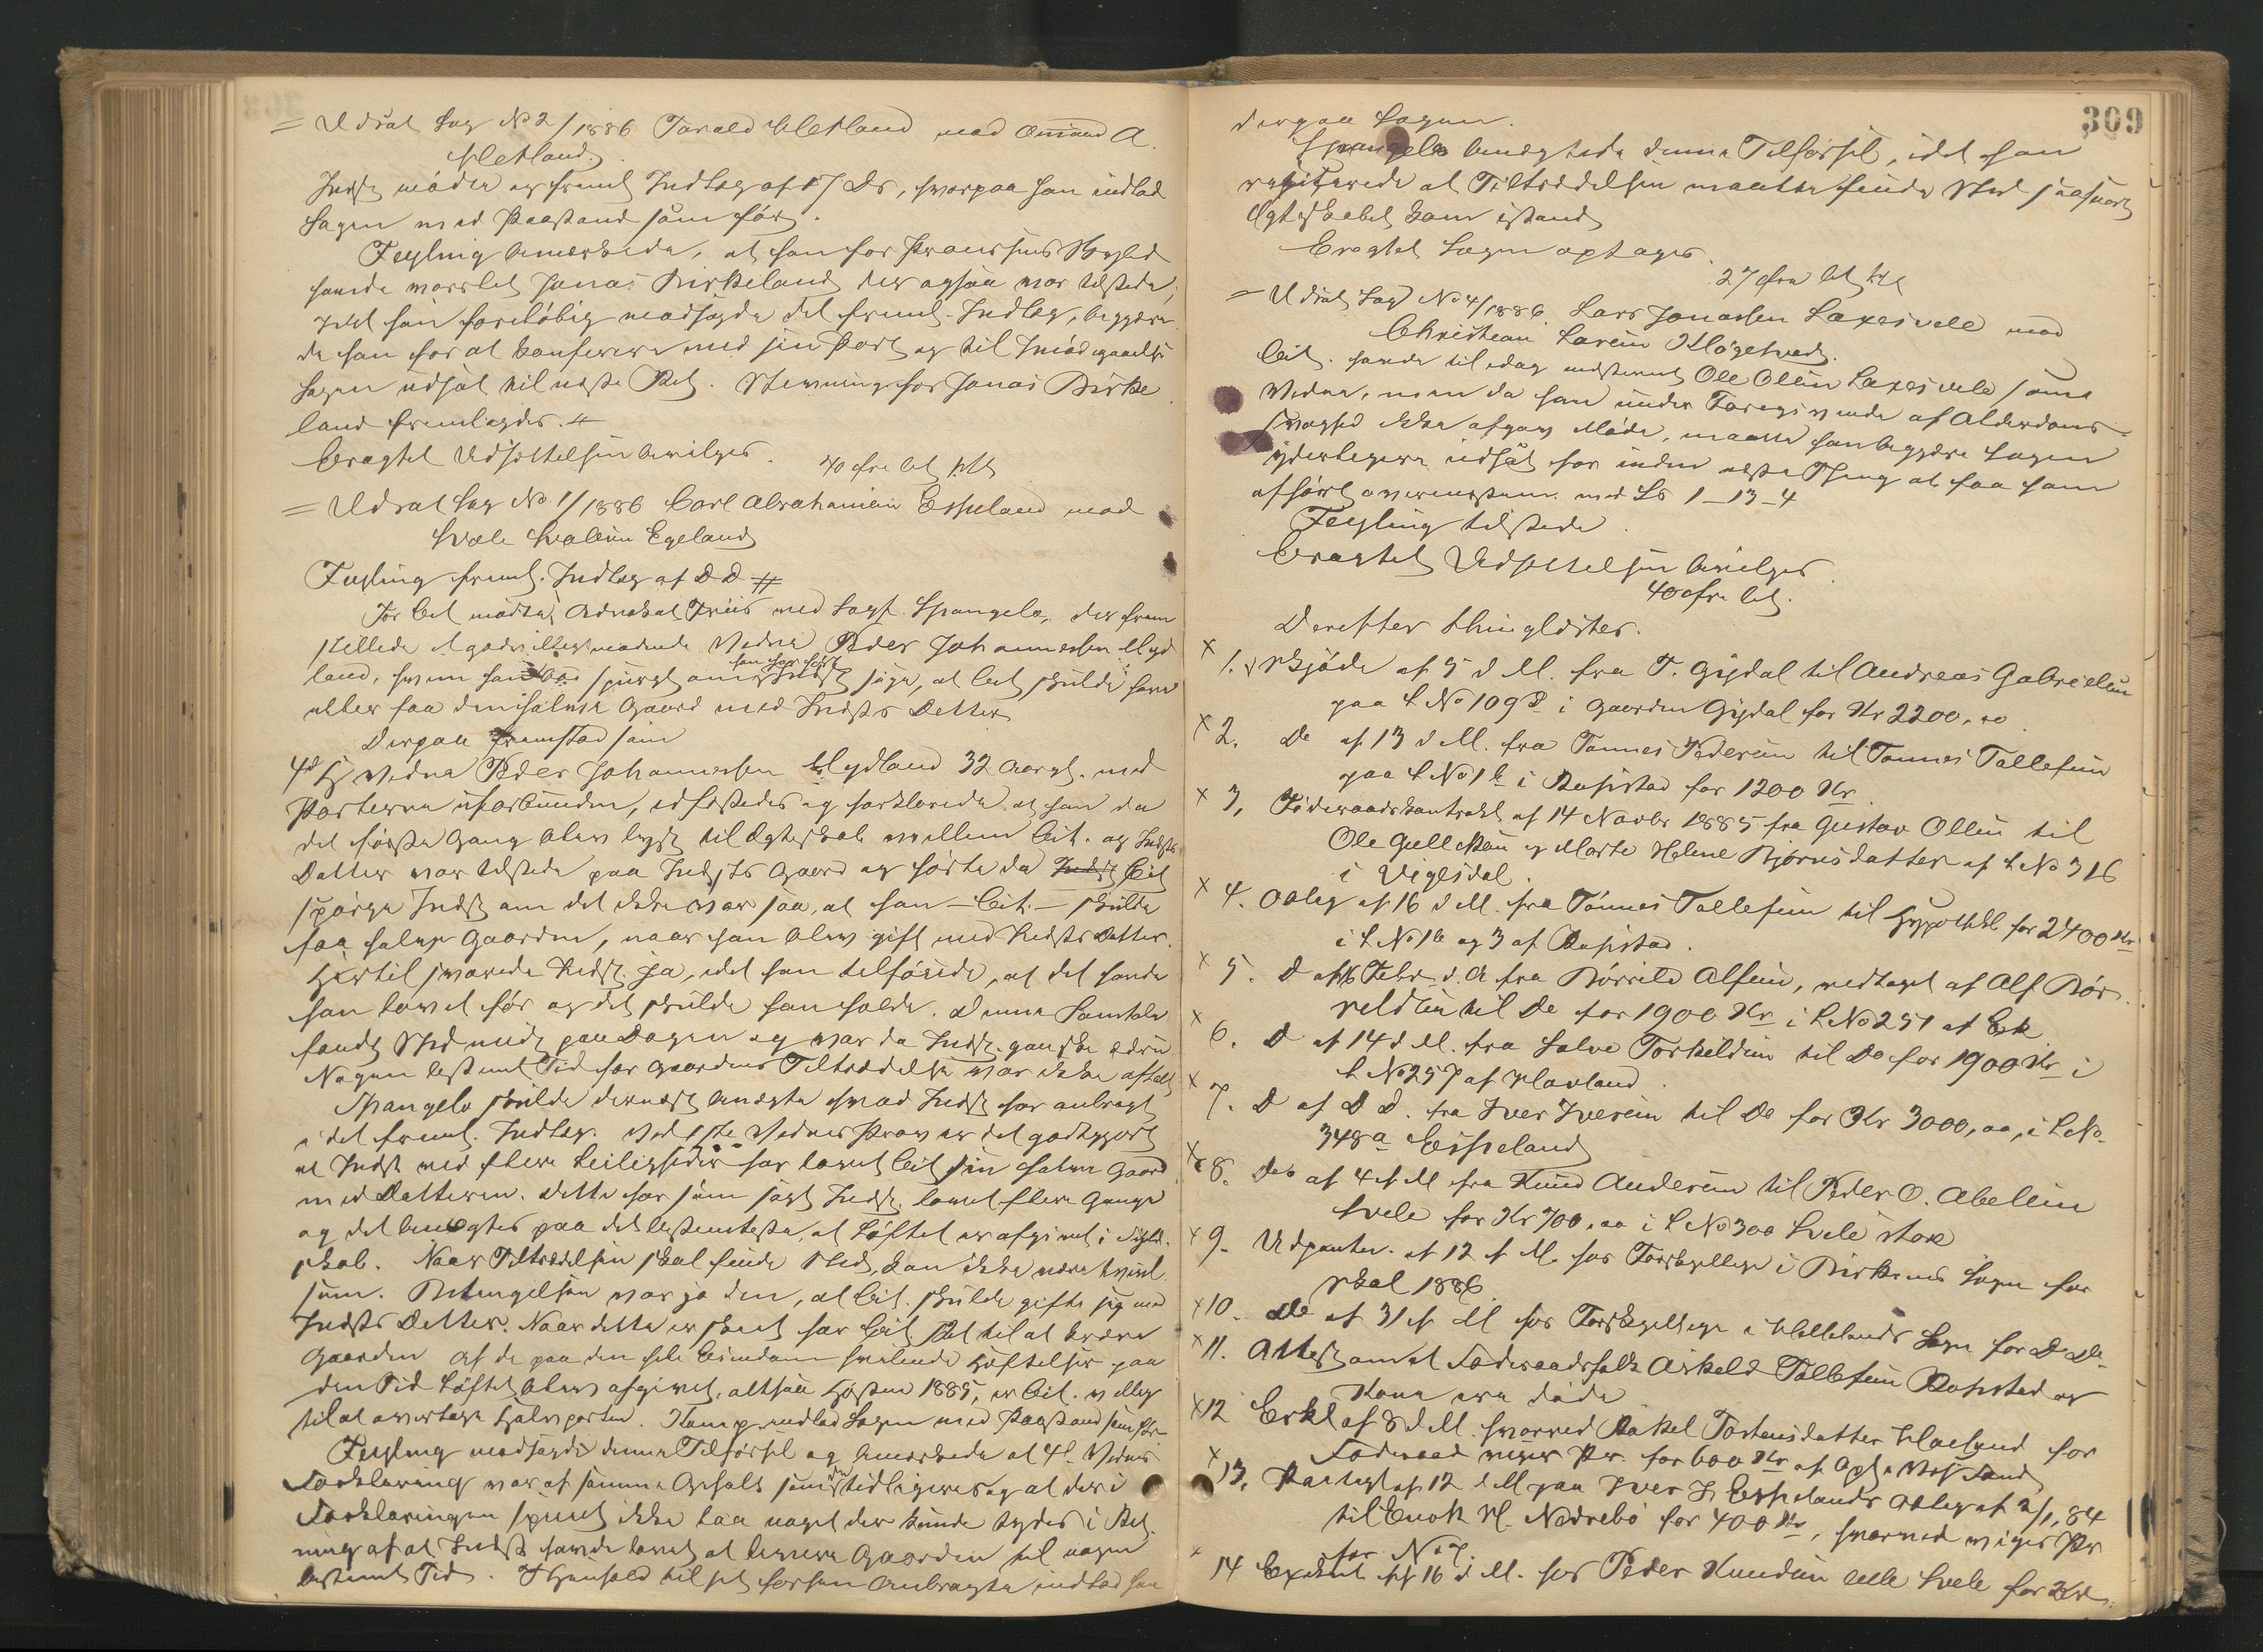 = Udsat Sag No 2/1886 Tarald Netland mod Omund A.
Netland.
Indst. mødte og freml. Indlæg af D. D., hvorpaa han indlod
Sagen med Paastand som før.
Feyling bemærkede, at han for Prøvens Skyld
havde varslet Jonas Birkeland der ogsaa var tilstede,
Idet han foreløbig modsagde det freml. Indlæg, begjære-
de han for at konferere med sin Part og til Imødegaaelse
Sagen udsat til næste Ret. Stevning for Jonas Birke
land fremlagdes. #
Eragtet Udsættelsen bevilges. 40 Øre bet.
= Udsat Sag No 1/1886 Carl Abrahamsen Espeland mod
Svale Svalesen Egeland
Feyling freml. Indlæg af D. D. #
For Cit. mødte Advokat Friis ved Sagf. Spangelo, der frem
stillede et godvilligmødende Vidne Peder Johannessen Myd
land, hvem han bad spurgt om han har hørt Indst. sige, at Cit. skulde have
eller faa den halve Gaard med Indsts Datter
Derpaa fremstod som
4d Vidne Peder Johannessen Mydland 32 Aar gl. med
Parterne uforbunden, edfæstedes og forklarede at han da
det første Gang blev lyst til Ægteskab mellem Cit. og Indsts
Datter var tilstede paa Indsts Gaard og hørte da Cit.
spørge Indst. om det ikke var saa, at han – Cit. – skulde
faa halve Gaarden, naar han blev gift med Indsts Datter.
Hertil svarede Indst. ja, idet han tilføiede, at det havde
han lovet før og det skulde han holde. Denne Samtale
fandt Sted midt paa Dagen og var da Indst. ganske ædru
Nogen bestemt Tid for Gaardens Tiltrædelse var ikke aftalt
Spangelo skulde dernæst benægte hvad Indst. har anbragt
i det freml. Indlæg. Ved 1ste Vidnes Prov er det godtgjort
at Indst. ved flere Leiligheder har lovet Cit. sin halve Gaard
med Datteren. Dette har som sagt Indst. lovet flere Gange
og det benægtes paa det bestemteste, at Løftet er afgivet i
skab. Naar Tiltrædelsen skal finde Sted, kan ikke være tvivl
som. Betingelsen var jo den, at Cit. skulde gifte sig med
Indsts Datter. Naar dette er skeet har Cit. Ret til at kræve
Gaarden af de paa den hele Eiendom hvilende Hæftelser paa
den Tid Løftet blev afgivet, altsaa Høsten 1885, er Cit. villig
til at overtage Halvparten. Komp. indlod Sagen med Paastand som før
Feyling modsagde denne Tilførsel og bemærkede at 4d Vidnes
Forklaring var af samme Gehalt som de tidligeres og at der i
Forklaringen specielt ikke laa noget der kunde tydes i Ret-
ning af at Indst. havde lovet at levere Gaarden til nogen
bestemt Tid. I Henhold til det forhen Anbragte indlod han
309
derpaa Sagen.
Spangelo benægtede denne Tilførsel, idet han
at Tiltrædelsen maatte finde Sted saasnart
Ægteskabet kom istand
Eragtet Sagen optages.
27 Øre bet.
= Udsat Sag No 4/1886 Lars Jonassen Laxesvele mod
Christian Larsen Kløgetvedt.
Cit. havde til idag indstevnt Ole Olsen Laxesvele som
Vidne, men da han under Foregivende af Alderdoms-
svaghed ikke afgav Møde, maatte han begjære Sagen
yderligere udsat for inden næste Thing at faa ham
afhørt overensstem. med Lb 1–13–4
Feyling tilstede.
Eragtet Udsættelsen bevilges.
40 Øre bet.
Derefter thinglæstes.
x 1. Skjøde af 5 d M. fra T. Gydal til Andreas Gabrielsen
paa L No 109d i Gaarden Gydal for Kr 2200,00
x 2. Do af 13 d M. fra Tønnes Pedersen til Tønnes Tollefsen
paa L No 1b i Rapstad for 1200 Kr.
x 3. Føderaadskontrakt af 14 Novbr 1885 fra Gustav Olsen til
Ole Gulleksen og Marte Helene Bjørnsdatter af L No 316
i Vigesdal.
x 4. Oblig. af 16 d M. fra Tønnes Tollefsen til Hypothb. for 2400 Kr
i L No 1b og 3 af Rapstad.
x 5. D af 16 Febr. d. A. fra Børrild Alfsen, vedtaget af Alf Bør-
reldsen til Do for 1900 Kr i L No 251 af Eik
x 6. D af 14 d M. fra Salve Torkeldsen til Do for 1900 Kr i
L No 257 af Hovland.
x 7. D af D d. fra Iver Iversen til Do for Kr 3000,00, i L No
348a Espeland
x 8. Do af 4 f M fra Knud Andersen til Peder O. Abelsen
Svele for Kr 700,00 i L No 300 Svele store
x 9. Udpantn. af 12 f M. hos Forskjellige i Birkrems Sogn for
Skat 1886
x 10. Do af 31 f M hos Forskjellige i Hellelands Sogn for D Do
x 11. Attest om at Føderaadsfolk Askeld Tollefsen Rapstad og
Kone ere døde
x 12 Erkl. af 8 d M. hvorved Rakel Torstensdatter for
Føderaad viger Pr. for 600 Kr af
x 13. Paategn. af 12 d M paa Iver I. Espelands Oblig. af 2/1 84
til Enok H. Nodrebø for 400 Kr, hvorved viges Pr
for No 7.
14 af 16 d M. hos Peder Knudsen lille Svele for Kr